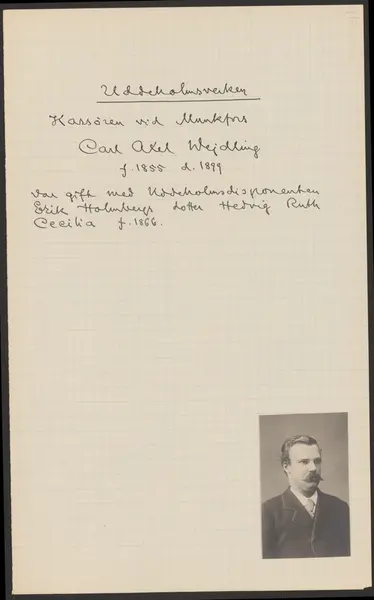 Uddeholmsverken
Kassören vid Munkfors
Carl Axel Wejdling
f. 1855 d. 1899
var gift med Uddeholmsdisponenten
Erik Holmbergs dotter Hedvig Ruth
Cecilia f. 1866.